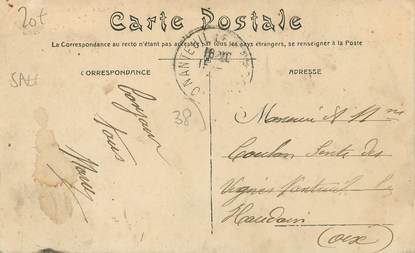 20t
Carte Postale
La Correspondance au recto n'étant pas acceptée par tous les pays étrangers, se renseigner à la Poste
SALE
CORRESPONDANCE
ADRESSE
NANTEUIL
38
Bonjour
Tous
Monsieur et Mme
Coulon Sente des
Vignes Nanteuil le
Haudoin
(Oise)